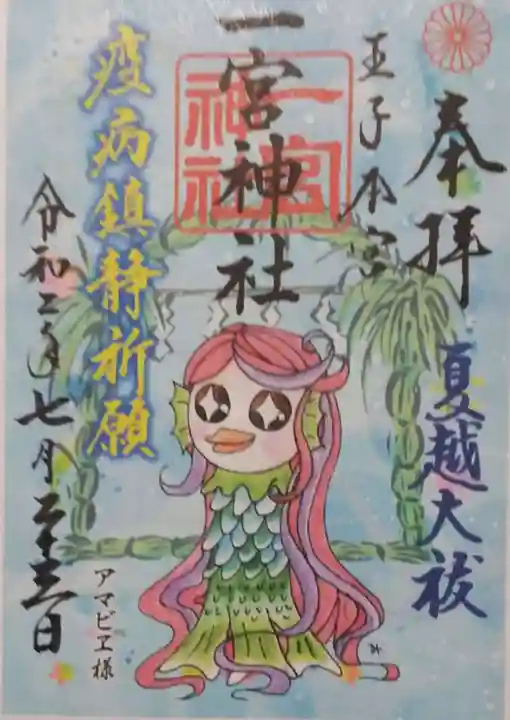 奉拝
夏越大祓
王子本宮
一宮神社
一宮
神社
疫病鎮静祈願
令和二年七月二十三日
アマビヱ様